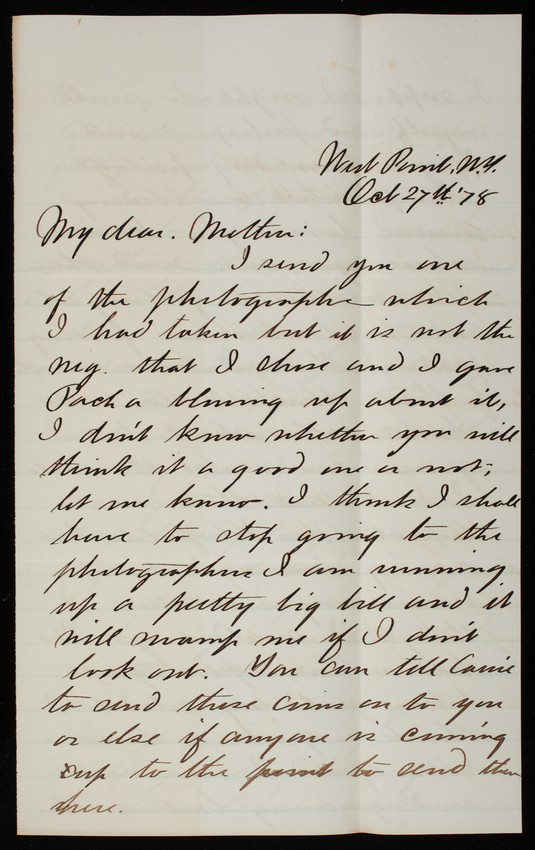 West Point, N.Y.
Oct 27th '78
My dear Mother:
I send you one
of the photographs which
I had taken but it is not the
neg. that I chose and I gave
Pach a blowing up about it,
I don't know whether you will
think it a good one or not;
let me know. I think I shall
have to stop going to the
photographers I am running
up a pretty big bill and it
will swamp me if I don't
look out. You can tell
to send those coins on to you
or else if anyone is coming
up to the point to send them
here.